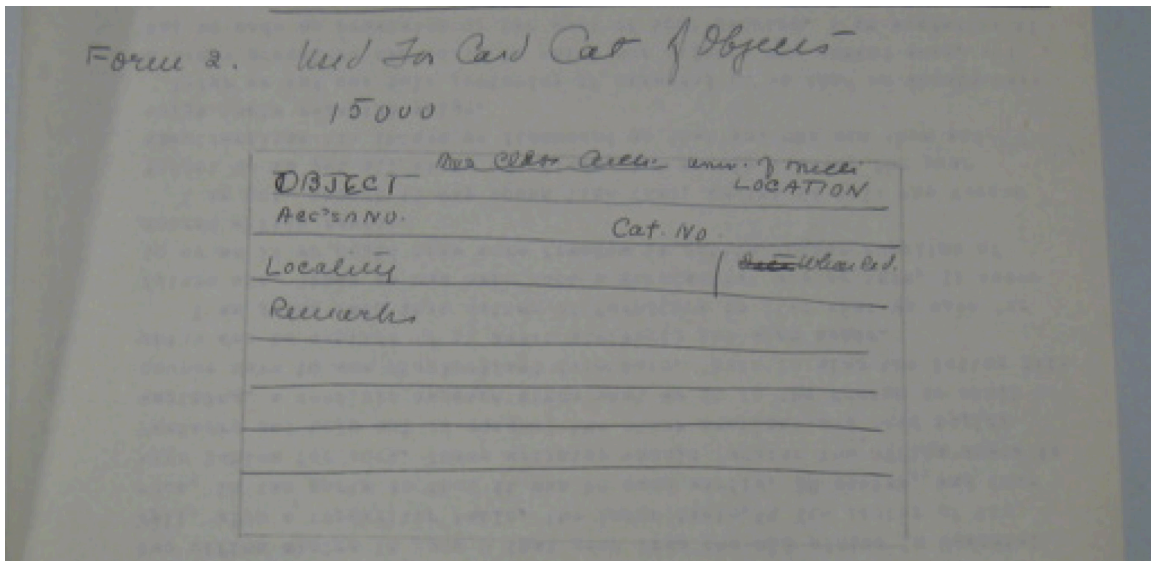 Form 2. Used For Card Cat of Objects
15000
Mus Class Arch. Univ. of Mich
OBJECT LOCATION
Acc'sn No. Cat. No.
Locality When Rec'd.
Remarks